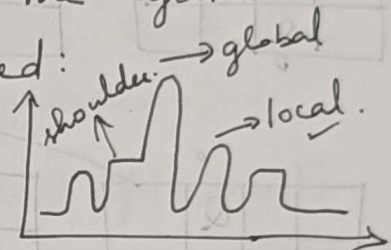 ed:
shoulder. → global
→ local.